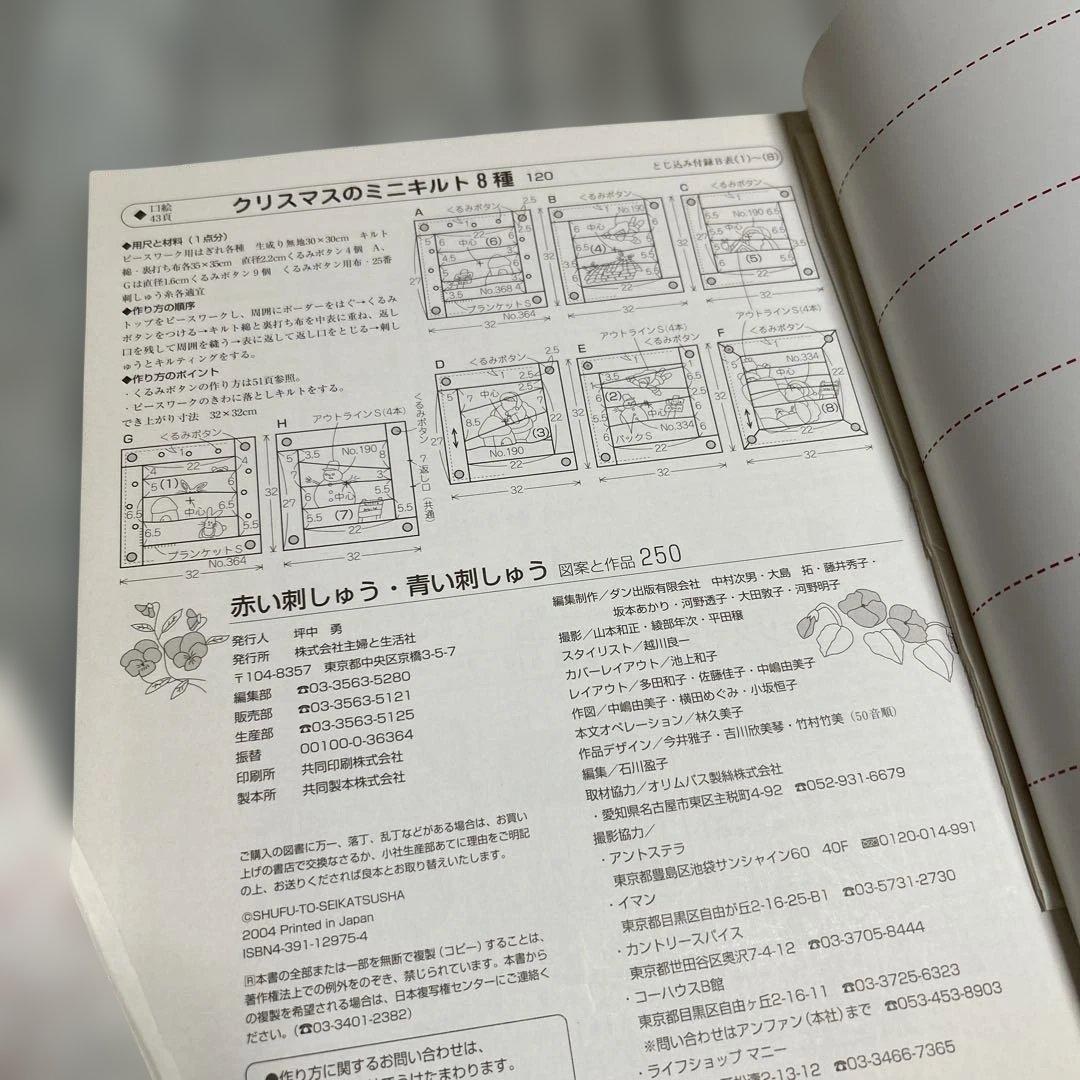 ◆口絵
43頁
クリスマスのミニキルト8種 120
とじ込み付録B表(1)〜(8)
◆用尺と材料(1点分)
ピースワーク用はぎれ各種 生成り無地30×30cm キルト
綿・裏打ち布各35×35cm 直径2.2cmくるみボタン4個 A、
Gは直径1.6cmくるみボタン9個 くるみボタン用布・25番
刺しゅう糸各適宜
◆作り方の順序
トップをピースワークし、周囲にボーダーをはぐ→くるみ
ボタンをつける→キルト綿と裏打ち布を中表に重ね、返し
口を残して周囲を縫う→表に返して返し口をとじる→刺し
ゅうとキルティングをする。
◆作り方のポイント
・くるみボタンの作り方は51頁参照。
・ピースワークのきわに落としキルトをする。
でき上がり寸法 32×32cm
A
くるみボタン
2.5
1
22
5
6
中心
(6)
2.5
4.5
3.5
27
32
3.5
No.368
4
ブランケットS
No.364
32
B
くるみボタン
No.190
6
中心
(4)
6
5.5
22
32
32
C
くるみボタン
5.5
No.190
6.5
中心
(5)
5.5
22
32
D
くるみボタン
2.5
1
22
2.5
5
7
中心
8.5
5
27
(3)
No.190
22
32
32
E
アウトラインS(4本)
くるみボタン
1
(2)
中心
5.5
6
バックS
No.334
22
32
32
F
アウトラインS(4本)
1
22
No.334
中心
(8)
22
32
32
G
くるみボタン
1
22
4
5
(1)
中心
6.5
5.5
ブランケットS
No.364
32
32
H
アウトラインS(4本)
くるみボタン
5
No.190
8
3
中心
5.5
27
5.5
(7)
22
7返し口(共通)
32
赤い刺しゅう・青い刺しゅう 図案と作品250
発行人 坪中 勇
発行所 株式会社主婦と生活社
〒104-8357 東京都中央区京橋3-5-7
編集部 ☎03-3563-5280
販売部 ☎03-3563-5121
生産部 ☎03-3563-5125
振替 00100-0-36364
印刷所 共同印刷株式会社
製本所 共同製本株式会社
ご購入の図書に万一、落丁、乱丁などがある場合は、お買い
上げの書店で交換なさるか、小社生産部あてに理由をご明記
の上、お送りくだされば良本とお取り替えいたします。
©SHUFU-TO-SEIKATSUSHA
2004 Printed in Japan
ISBN4-391-12975-4
Ⓡ本書の全部または一部を無断で複製(コピー)することは、
著作権法上での例外をのぞき、禁じられています。本書から
の複製を希望される場合は、日本複写権センターにご連絡く
ださい。(☎03-3401-2382)
●作り方に関するお問い合わせは、
編集制作/ダン出版有限会社 中村次男・大島 拓・藤井秀子・
坂本あかり・河野透子・大田敦子・河野明子
撮影/山本和正・綾部年次・平田穣
スタイリスト/越川良一
カバーレイアウト/池上和子
レイアウト/多田和子・佐藤佳子・中嶋由美子
作図/中嶋由美子・横田めぐみ・小坂恒子
本文オペレーション/林久美子
作品デザイン/今井雅子・吉川欣美琴・竹村竹美(50音順)
編集/石川盈子
取材協力/オリムパス製絲株式会社
・愛知県名古屋市東区主税町4-92 ☎052-931-6679
撮影協力/
・アントステラ
東京都豊島区池袋サンシャイン60 40F 0120-014-991
・イマン
東京都目黒区自由が丘2-16-25-B1 ☎03-5731-2730
・カントリースパイス
東京都世田谷区奥沢7-4-12 ☎03-3705-8444
・コーハウスB館
東京都目黒区自由ヶ丘2-16-11 ☎03-3725-6323
※問い合わせはアンファン(本社)まで ☎053-453-8903
・ライフショップ マニー
2-13-12 ☎03-3466-7365